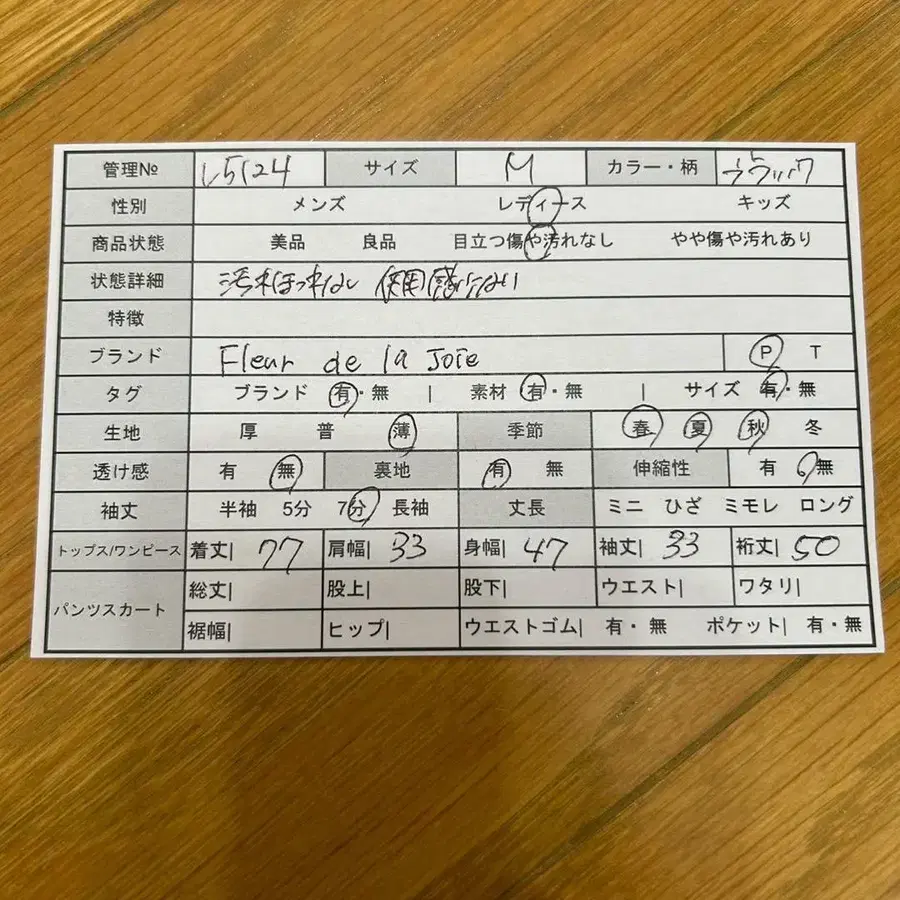 管理№ L5124 サイズ M カラー・柄 ブラック
性別 メンズ レディース キッズ
商品状態 美品 良品 目立つ傷や汚れなし やや傷や汚れあり
状態詳細 汚れほつれなし 使用感はない
特徴
ブランド Fleur de la Joie P T
タグ ブランド 有・無 | 素材 有・無 | サイズ 有・無
生地 厚 普 薄 季節 春 夏 秋 冬
透け感 有 無 裏地 有 無 伸縮性 有 無
袖丈 半袖 5分 7分 長袖 丈長 ミニ ひざ ミモレ ロング
トップス/ワンピース 着丈| 77 肩幅| 33 身幅| 47 袖丈| 33 裄丈| 50
パンツスカート 総丈| 股上| 股下| ウエスト| ワタリ|
裾幅| ヒップ| ウエストゴム| 有・無 ポケット| 有・無